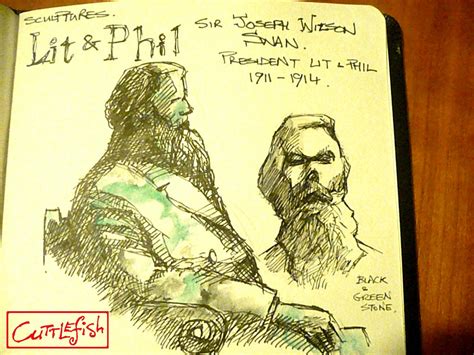 SCULPTURES.
Lit & Phil
SIR JOSEPH WILSON
SWAN.
PRESIDENT LIT & PHIL
1911-1914.
BLACK
&
GREEN
STONE.
CUTTLEFISH